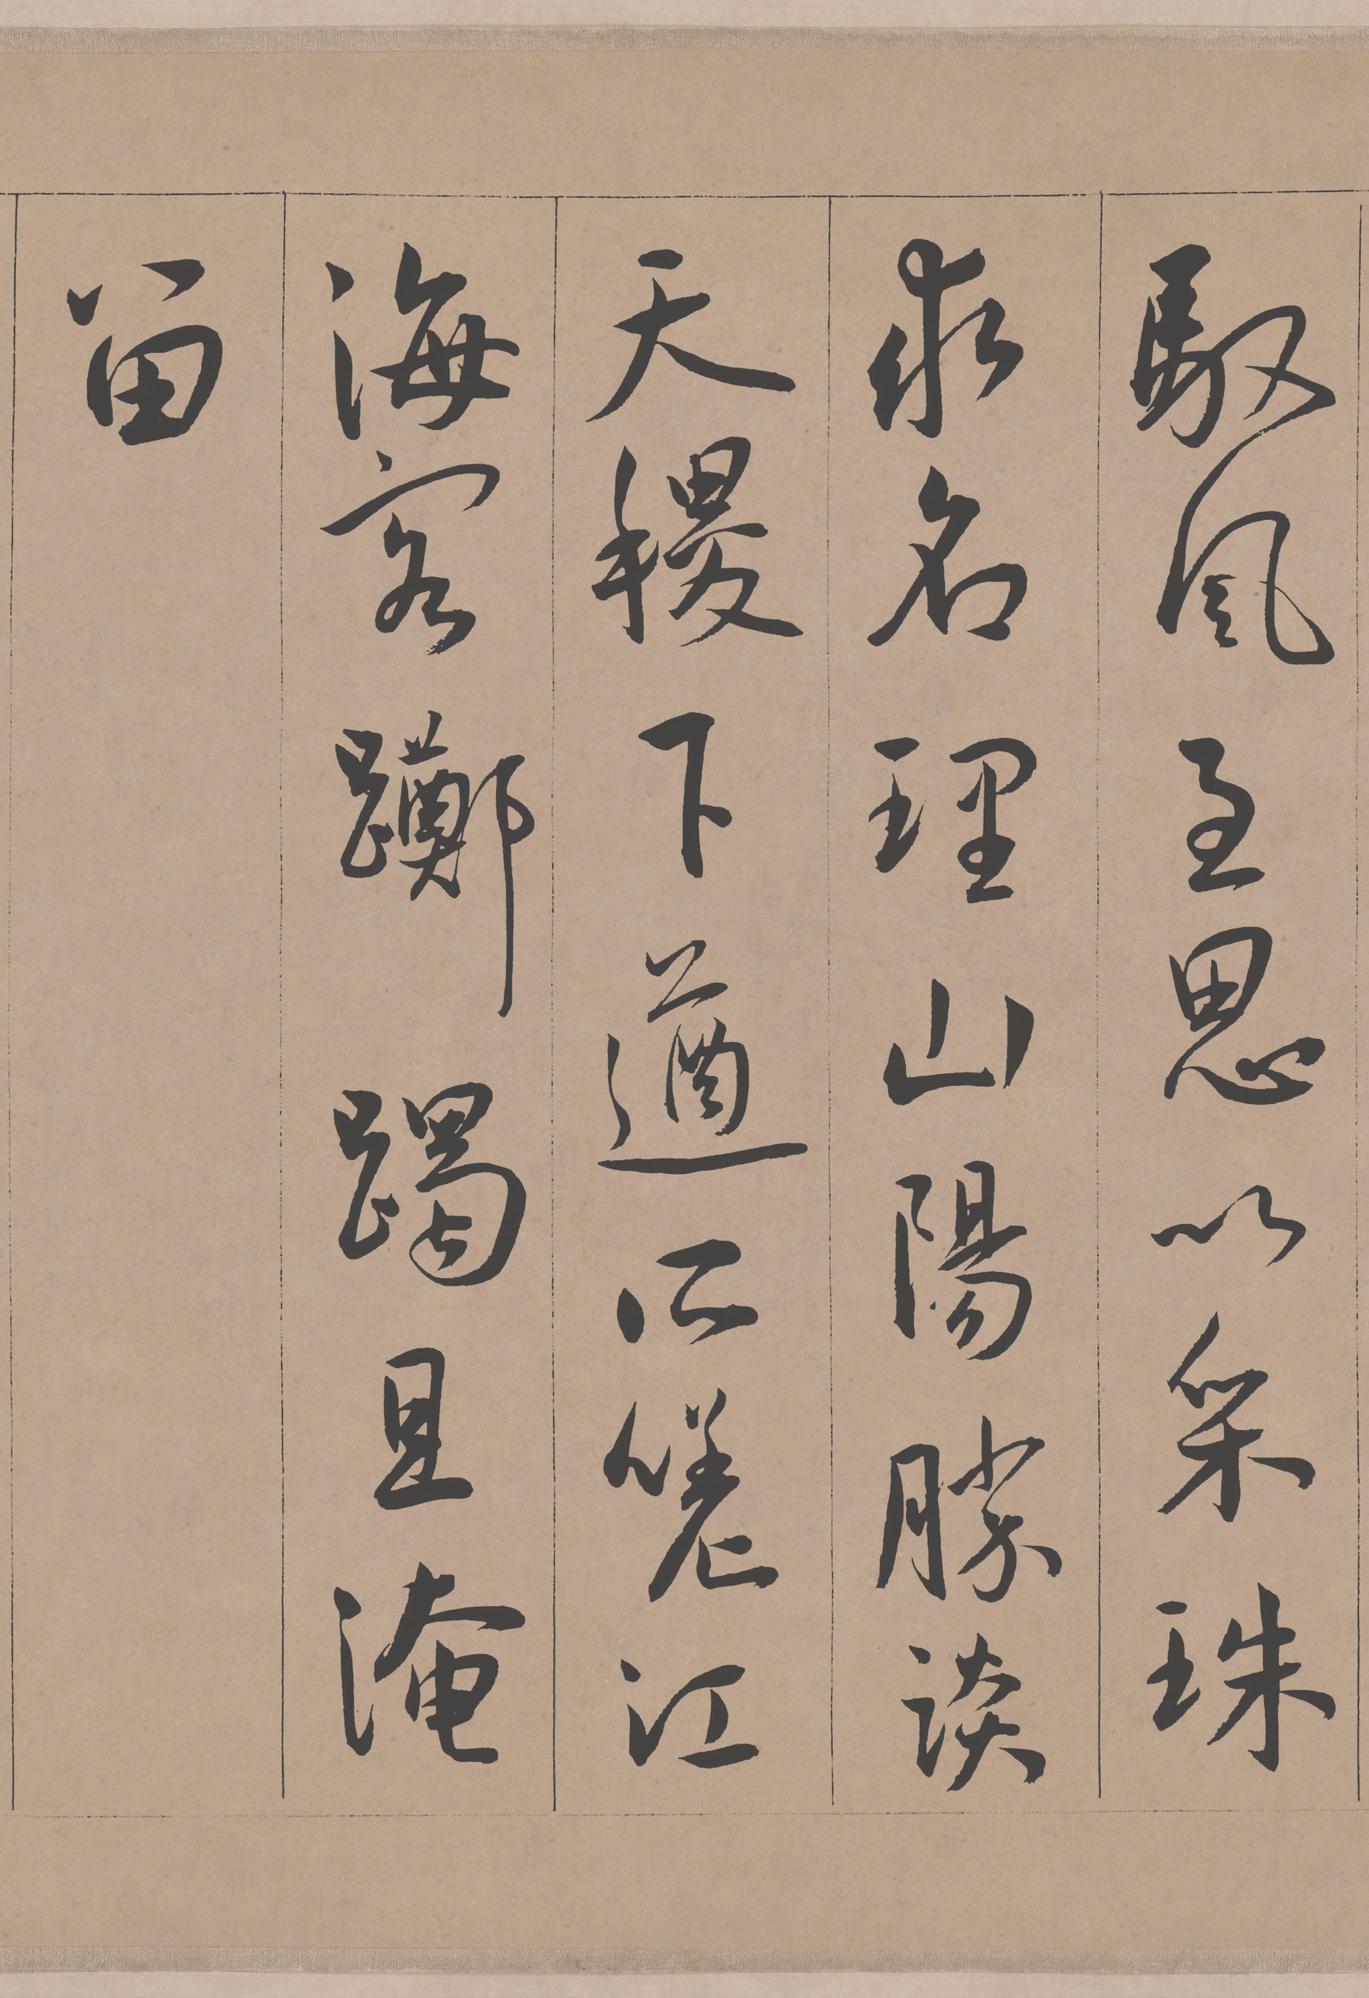 馭風至思以采珠
求名理山陽勝談
天稷下遒所嗟江
海客躑躅且淹
留